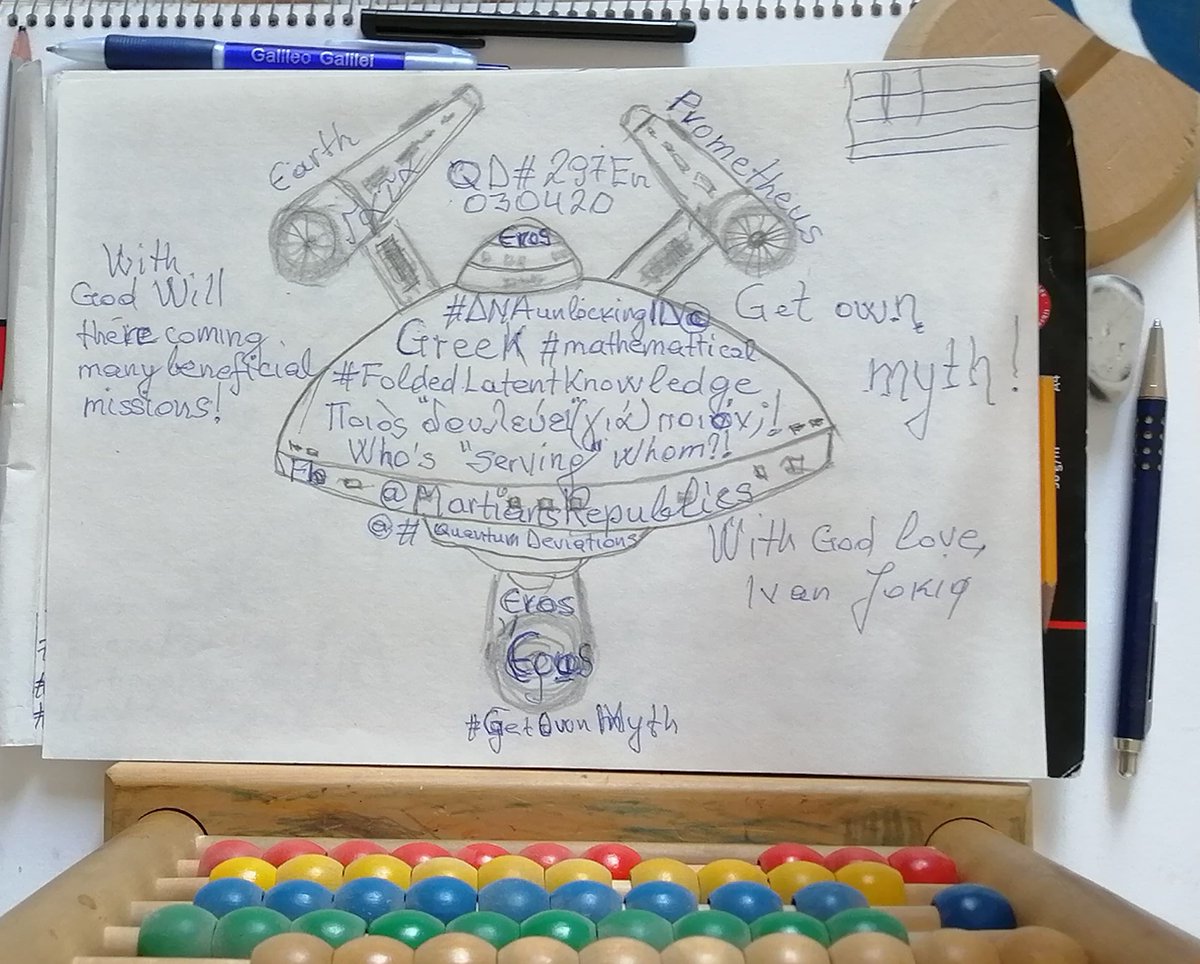 Galileo Galilei
Earth
Prometheus
QD#297En
030420
Eros
With
God Will
there coming
many beneficial
missions!
#DNAunlockingID@
Greek #mathemattical
#FoldedLatentKnowledge
Ποιὸς "δουλεύει" (γιὰ) ποιόν;!
Who's "serving" whom?!
@MartiansRepublics
@# QuantumDeviations
Get own
myth!
With God love,
Ivan
Eros
#GetOwnMyth